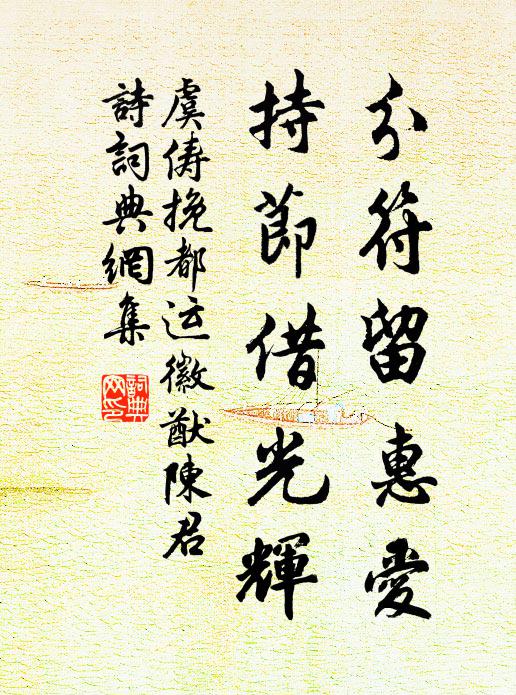 分符留惠愛
持節借光輝
虞儔挽都运徽猷陳君
詩詞典網集
詞典
网印